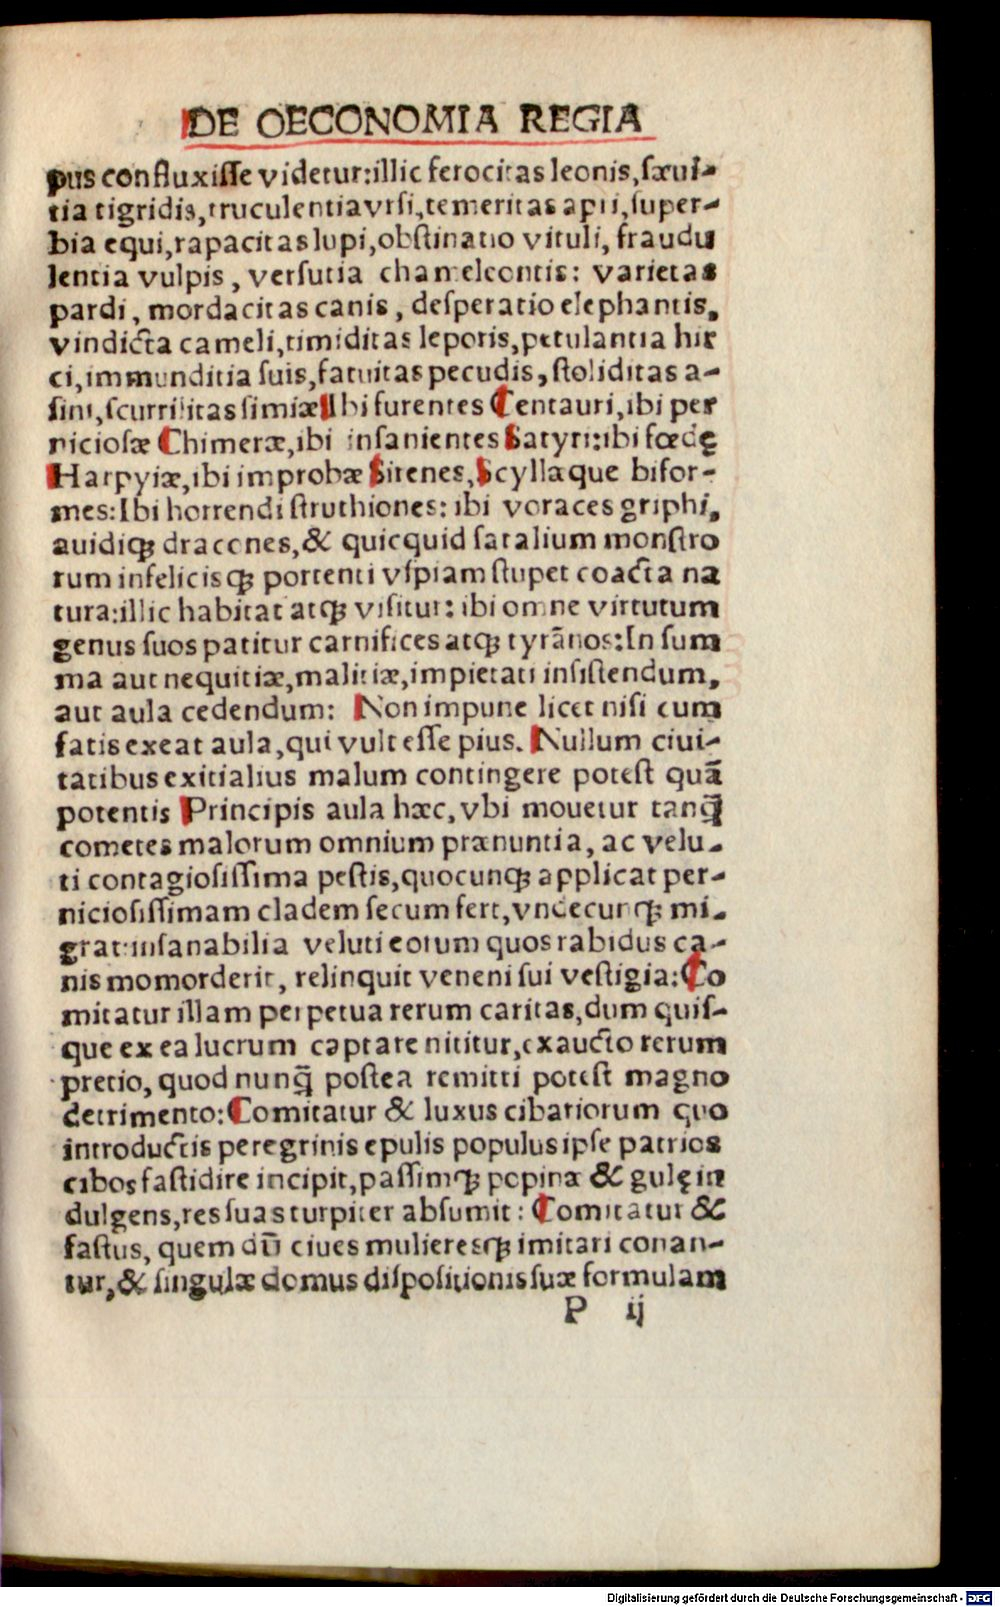 DE OECONOMIA REGIA
pus confluxiſſe videtur:illic ferocitas leonis,ſæui-
tia tigridis,truculentia vrſi,temeritas apri,ſuper-
bia equi,rapacitas lupi,obſtinatio vituli, fraudu
lentia vulpis, verſutia chameleontis: varietas
pardi, mordacitas canis, deſperatio elephantis,
vindicta cameli,timiditas leporis,petulantia hir
ci,immunditia ſuis,fatuitas pecudis, ſtoliditas a-
ſini,ſcurrilitas ſimiæ Ibi furentes Centauri,ibi per
niciosæ Chimeræ,ibi inſanientes Satyri:ibi fœdę
Harpyiæ,ibi improbæ Sirenes, Scyllæque bifor-
mes:Ibi horrendi ſtruthiones: ibi voraces griphi,
auidiqꝫ dracones,& quicquid fatalium monſtro
rum infelicisqꝫ portenti vſpiam ſtupet coacta na
tura:illic habitat atqꝫ viſitur: ibi omne virtutum
genus ſuos patitur carnifices atqꝫ tyrānos:In ſum
ma aut nequitiæ,malitiæ,impietati inſiſtendum,
aut aula cedendum: Non impune licet niſi cum
fatis exeat aula,qui vult eſſe pius. Nullum ciui-
tatibus exitialius malum contingere poteſt quā
potentis Principis aula hæc, vbi mouetur tanq̄
cometes malorum omnium prænuntia, ac velu-
ti contagioſiſſima peſtis,quocunqꝫ applicat per-
nicioſiſſimam cladem ſecum fert,vndecunqꝫ mi-
grat:inſanabilia veluti eorum quos rabidus ca-
nis momorderit, relinquit veneni ſui veſtigia:Co
mitatur illam perpetua rerum caritas,dum quiſ-
que ex ea lucrum captare nititur,exaucto rerum
pretio, quod nunq̄ poſtea remitti poteſt magno
detrimento:Comitatur & luxus cibariorum quo
introductis peregrinis epulis populus ipſe patrios
cibos faſtidire incipit,paſſimqꝫ popinæ & gulę in
dulgens,res ſuas turpiter abſumit: Comitatur &
faſtus, quem dū ciues mulieresqꝫ imitari conan-
tur,& ſingulæ domus diſpoſitionis ſuæ formulam
P ij
Digitalisierung gefördert durch die Deutsche Forschungsgemeinschaft - DFG